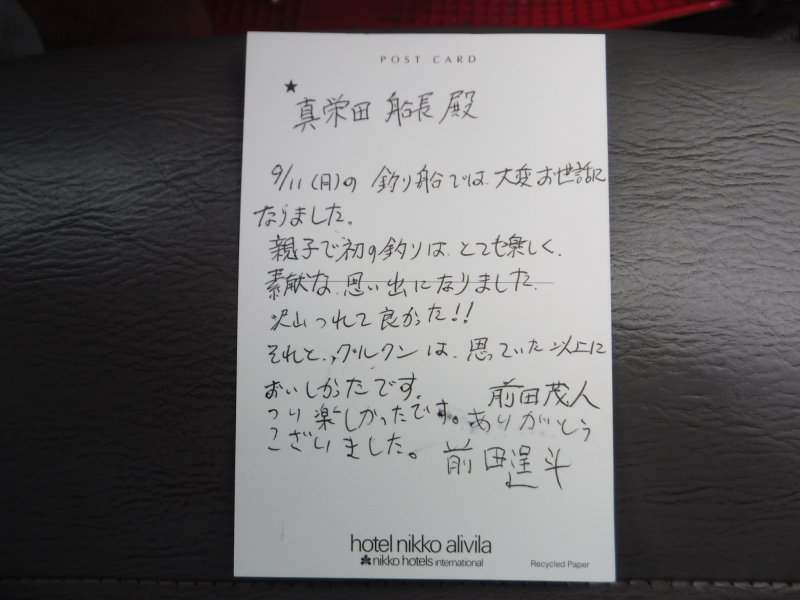 POST CARD
★
真栄田 船長 殿
9/11 (日)の 釣り船では、大変お世話に
なりました。
親子で初の釣りは、とても楽しく、
素献な 思い出になりました
沢山つれて良かった!!
それと、グルクンは、思っていた以上に
おいしかったです。 前田茂人
つり楽しかったです。ありがとう
ございました。 前田 斗
hotel nikko alivila
nikko hotels international
Recycled Paper